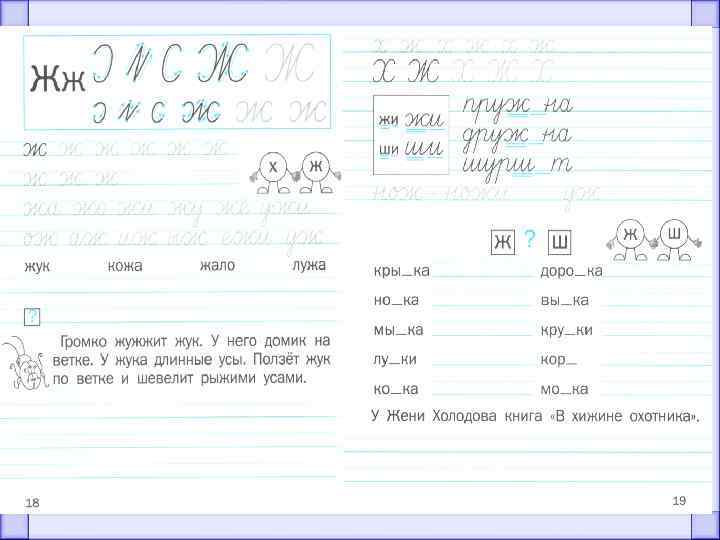 Жж Ͻ И С Ж Ж
Ͻ И С Ж Ж Ж
ж ж ж ж ж ж
х ж
ж ж ж
жа жо жи жу же ужи
ож аж иж нож ежи уж
жук кожа жало лужа
?
Громко жужжит жук. У него домик на
ветке. У жука длинные усы. Ползёт жук
по ветке и шевелит рыжими усами.
18
х ж х ж х ж
Х Ж Х Ж Х
жи жи
ши ши
пруж_на
друж_на
шурш_т
нож - ножи уж
Ж ? Ш
Ж Ш
кры_ка доро_ка
но_ка вы_ка
мы_ка кру_ки
лу_ки кор_
ко_ка мо_ка
У Жени Холодова книга «В хижине охотника».
19